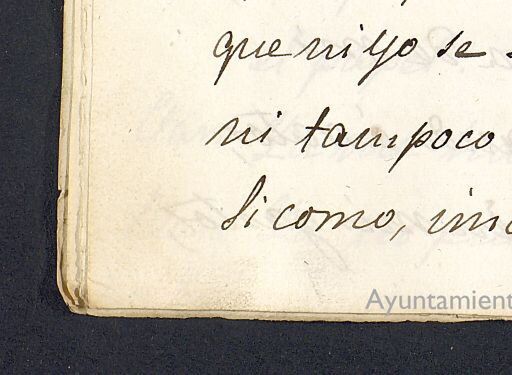 que ni yo se
ni tampoco
Si como,
Ayuntamient